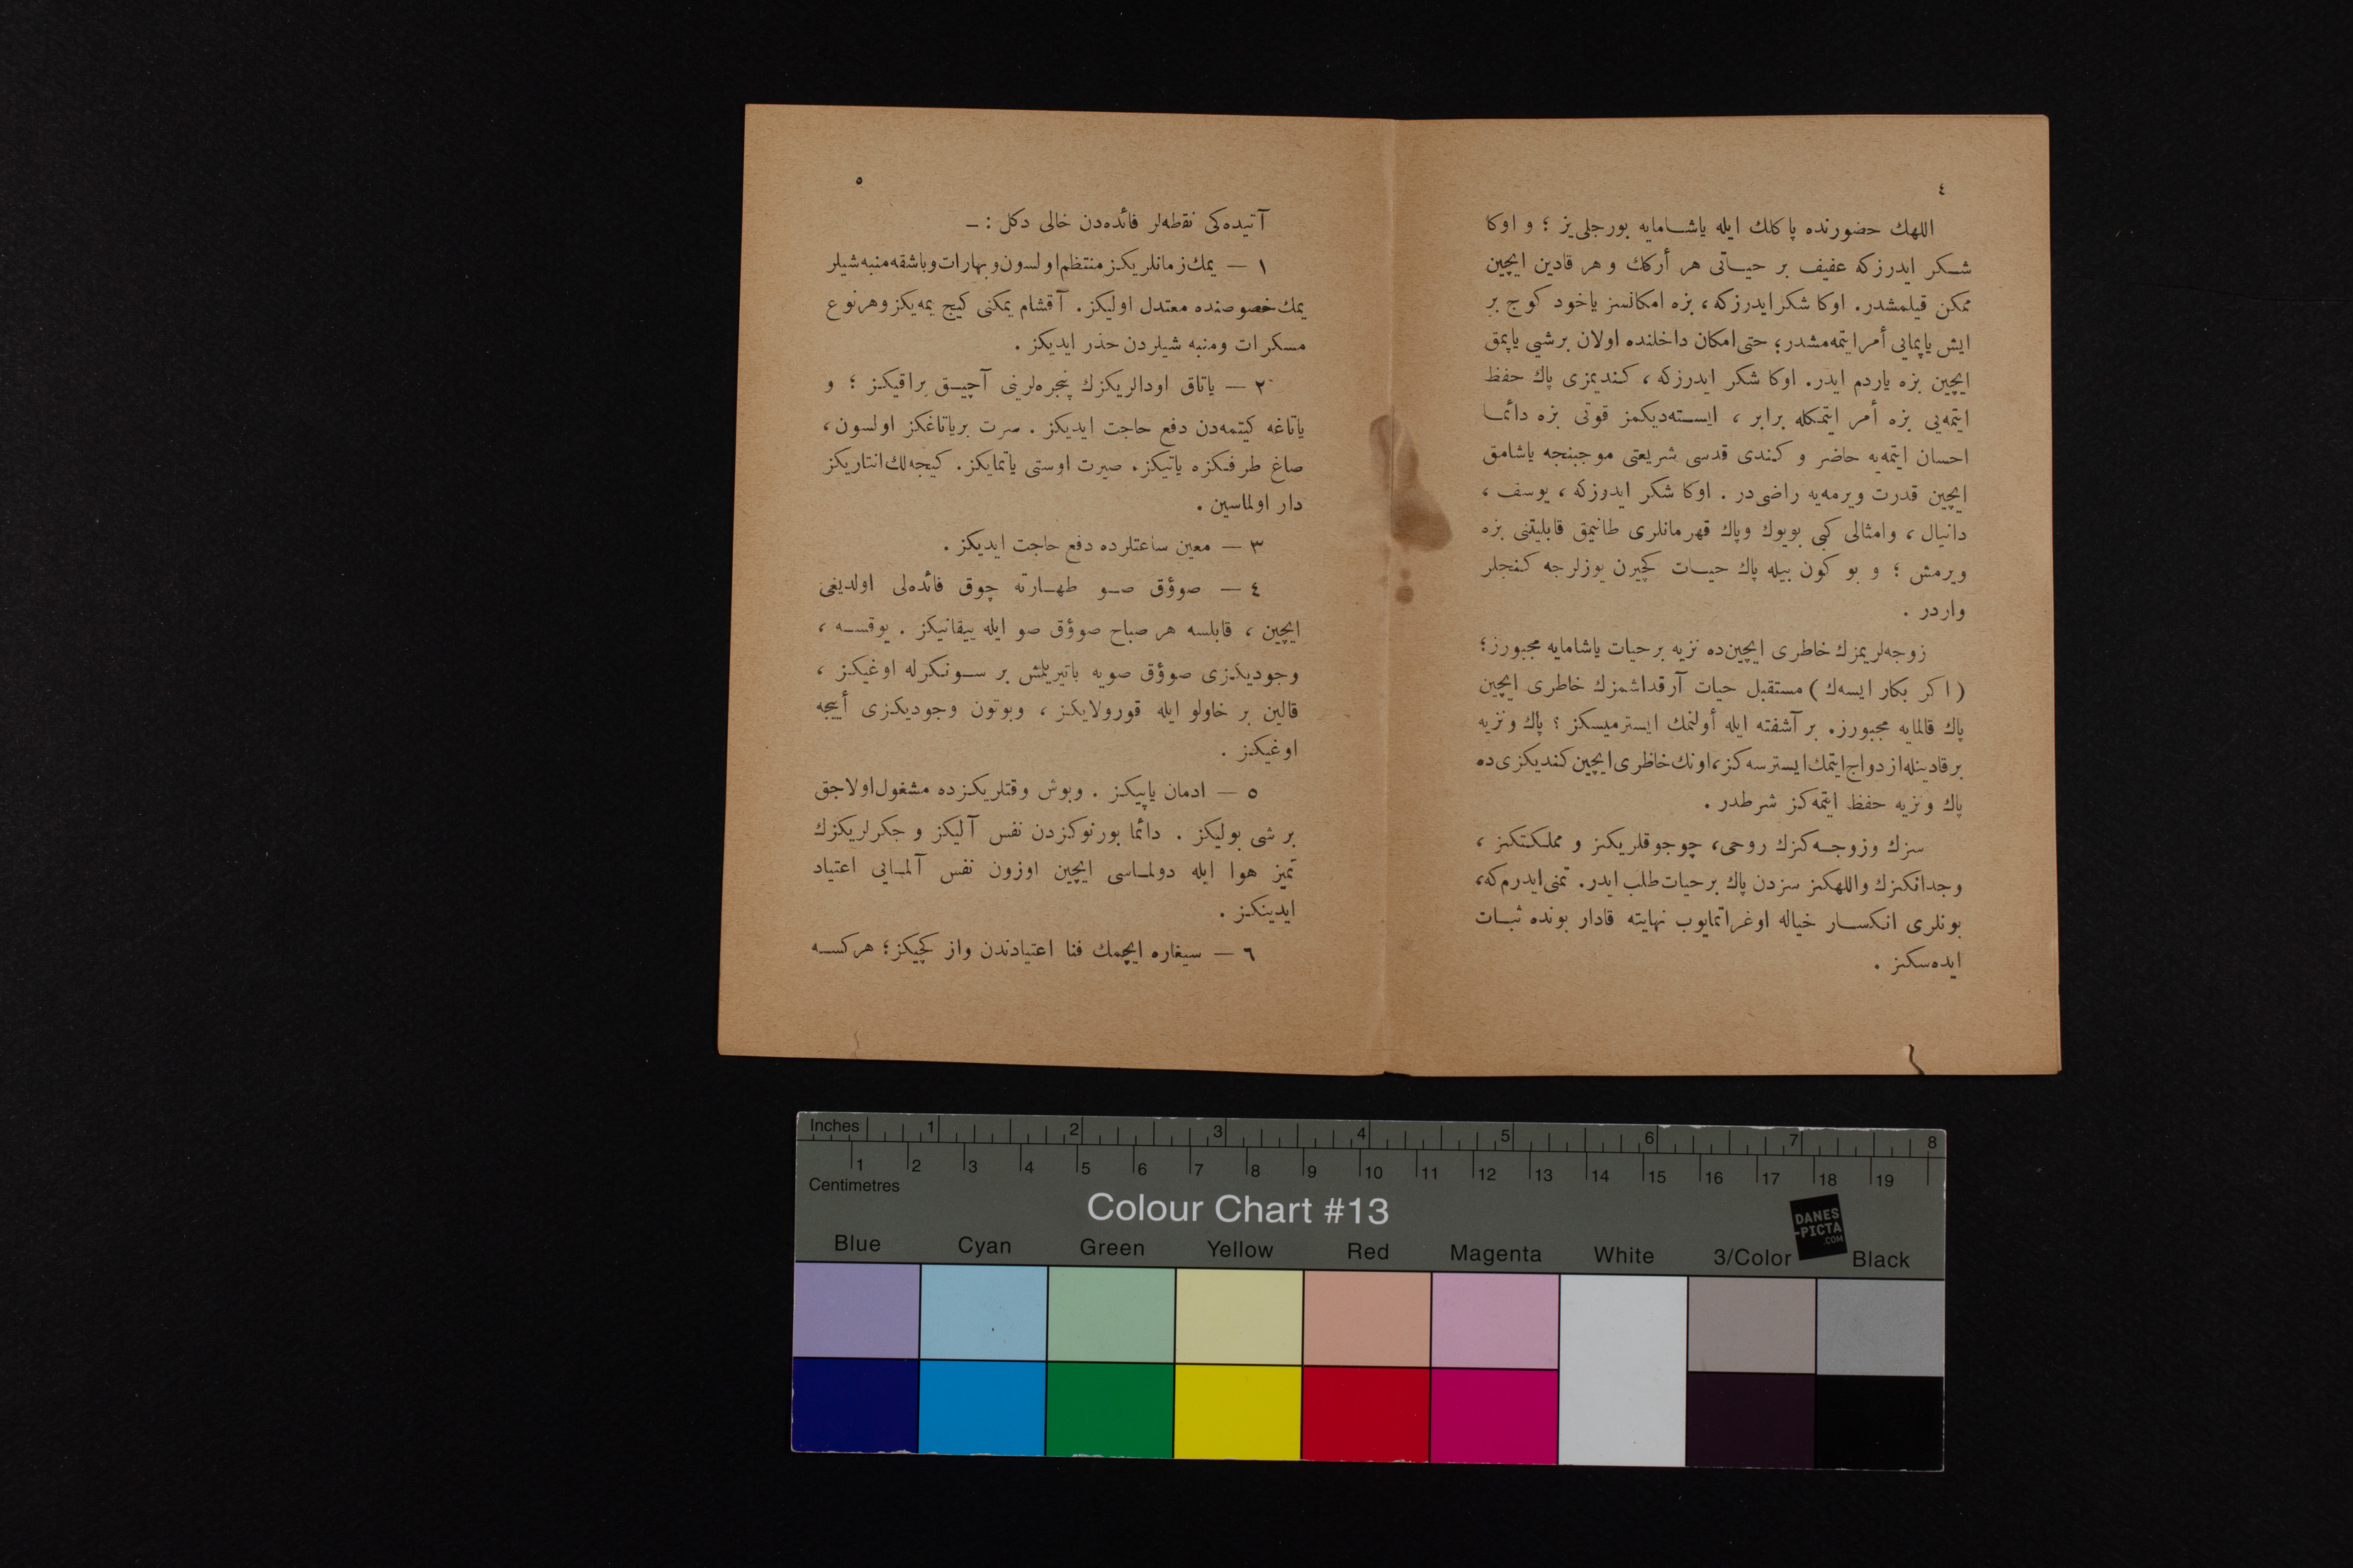 ٤
اللهك حضورنده پاكلك ايله ياشامايه بورجلى‌يز ؛ و اوكا
شكر ايدرزكه عفيف بر حياتى هر أركك و هر قادين ايچين
ممكن قيلمشدر. اوكا شكر ايدرزكه ، بزه امكانسز ياخود كوج بر
ايش ياپمايى أمر ايتمه‌مشدر؛ حتى امكان داخلنده اولان برشيى ياپمق
ايچين بزه ياردم ايدر. اوكا شكر ايدرزكه ، كنديمزى پاك حفظ
ايتمه‌يى بزه أمر ايتمكله برابر ، ايسته‌ديكمز قوتى بزه دائما
احسان ايتمه‌يه حاضر و كندى قدسى شريعتى موجبنجه ياشامق
ايچين قدرت ويرمه‌يه راضى‌در . اوكا شكر ايدرزكه ، يوسف ،
دانيال ، وامثالى كبى بويوك وپاك قهرمانلرى طانيمق قابليتنى بزه
ويرمش ؛ و بو كون بيله پاك حيات كچيرن يوزلرجه كنجلر
واردر .
زوجه‌لريمزك خاطرى ايچين‌ده نزيه برحيات ياشامايه مجبورز؛
( اكر بكار ايسه‌ك ) مستقبل حيات آرقداشمزك خاطرى ايچين
پاك قالمايه مجبورز. بر آشفته ايله أولنمك ايسترميسكز ؟ پاك ونزيه
برقادينله ازدواج ايتمك ايسترسه‌كز، اونك خاطرى ايچين كنديكزى‌ده
پاك ونزيه حفظ ايتمه‌كز شرطدر .
سزك وزوجه‌كزك روحى، چوجوقلريكز و مملكتكز ،
وجدانكزك واللهكز سزدن پاك برحيات طلب ايدر. تمنى ايدرم‌كه،
بونلرى انكسار خياله اوغراتمايوب نهايته قادار بونده ثبات
ايده‌سكز .
٥
آتيده‌كى نقطه‌لر فائده‌دن خالى دكل : –
١ — يمك زمانلريكز منتظم اولسون و بهارات و باشقه منبه شيلر
يمك خصوصنده معتدل اوليكز. آقشام يمكنى كيج يمه‌يكز وهر نوع
مسكرات ومنبه شيلردن حذر ايديكز .
٢ — ياتاق اودالريكزك پنجره‌لرينى آچيق براقيكز ؛ و
ياتاغه كيتمه‌دن دفع حاجت ايديكز . سرت برياتاغكز اولسون ،
صاغ طرفكزه ياتيكز. صيرت اوستى ياتمايكز. كيجه‌لك انتاريكز
دار اولماسين .
٣ — معين ساعتلرده دفع حاجت ايديكز .
٤ — صوؤق صو طهارته چوق فائده‌لى اولديغى
ايچين ، قابلسه هر صباح صوؤق صو ايله ييقانيكز . يوقسه ،
وجوديكزى صوؤق صويه باتيريلمش بر سونكرله اوغيكز ،
قالين بر خاولو ايله قورولايكز ، وبوتون وجوديكزى أييجه
اوغيكز .
٥ — ادمان ياپيكز . وبوش وقتلريكزده مشغول اولاجق
بر شى بوليكز . دائما بورنوكزدن نفس آليكز و جكرلريكزك
تميز هوا ايله دولماسى ايچين اوزون نفس آلمايى اعتياد
ايدينكز .
٦ — سيغاره ايچمك فنا اعتيادندن واز كچيكز؛ هركسه
Inches 1 2 3 4 5 6 7 8
1 2 3 4 5 6 7 8 9 10 11 12 13 14 15 16 17 18 19
Centimetres
Colour Chart #13
DANES
-PICTA
.COM
Blue Cyan Green Yellow Red Magenta White 3/Color Black